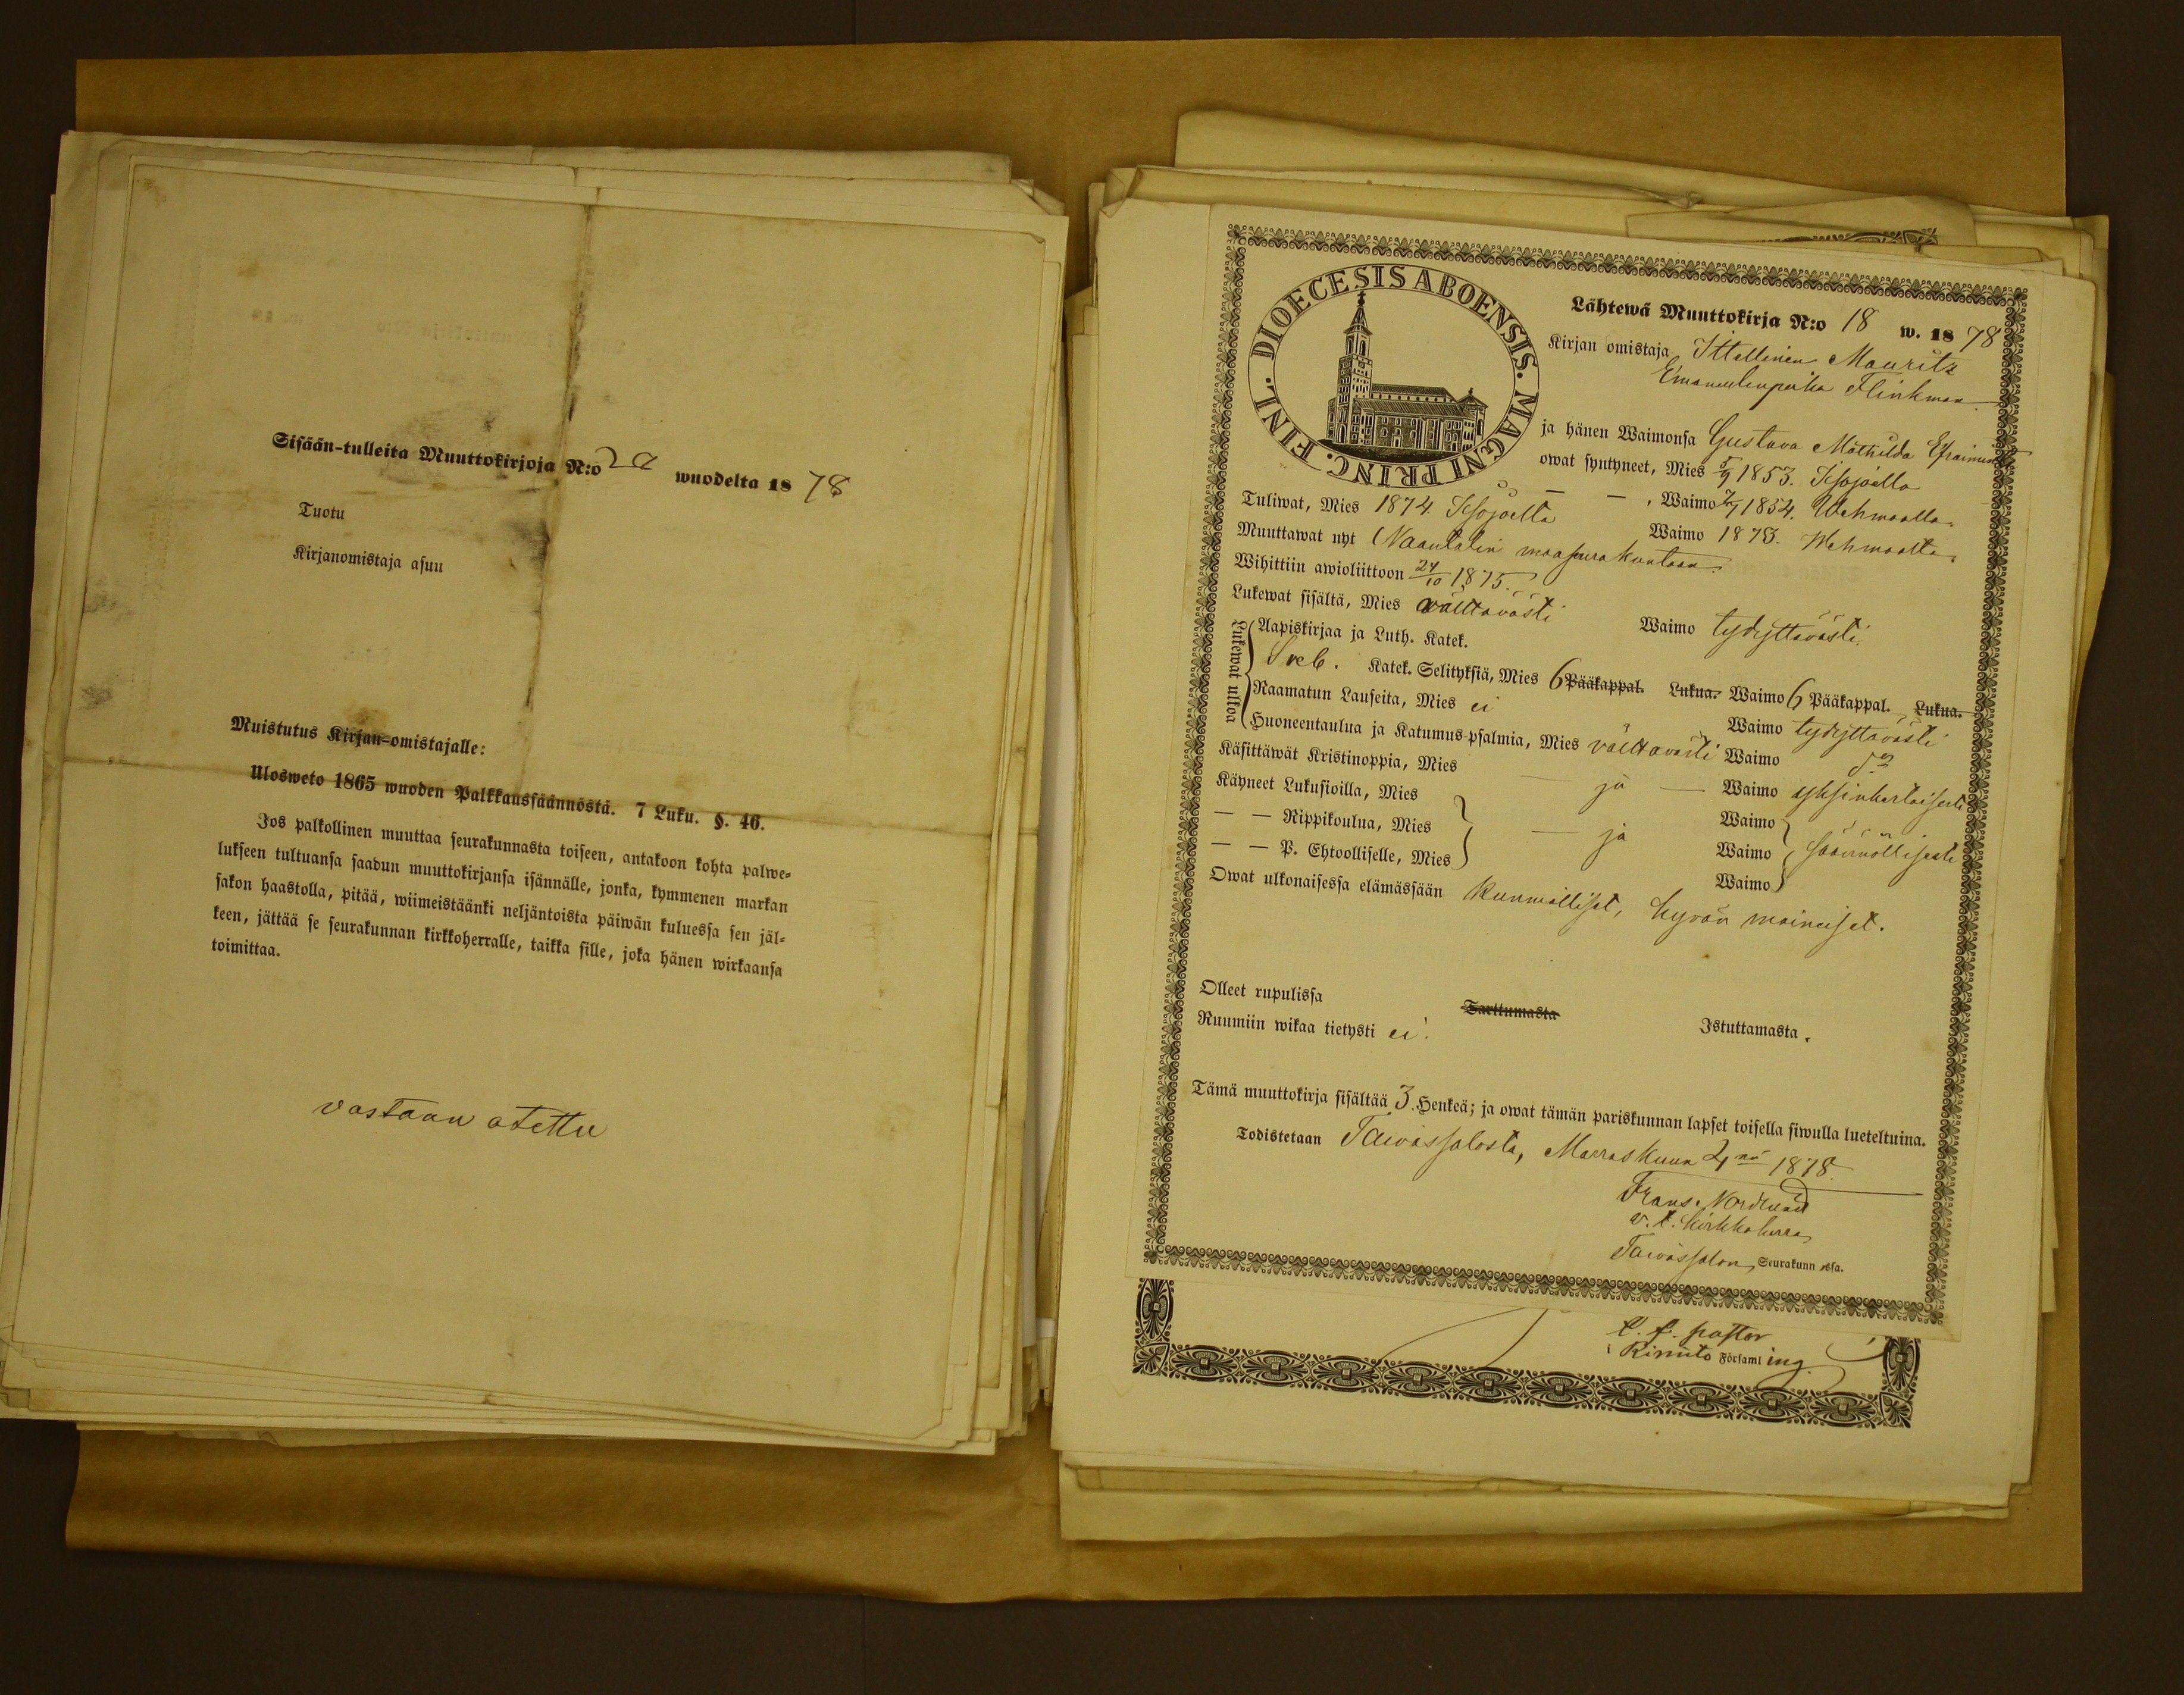 Sisään-tulleita Muuttokirjoja N:o 2a wuodelta 1878
Tuotu
Kirjanomistaja asuu
Muistutus Kirjan-omistajalle:
Ulosweto 1865 wuoden Palkkaussäännöstä. 7 Luku. §. 46.
Jos palkollinen muuttaa seurakunnasta toiseen, antakoon kohta palwe-
lukseen tultuansa saadun muuttokirjansa isännälle, jonka, kymmenen markan
sakon haastolla, pitää, wiimeistäänki neljäntoista päiwän kuluessa sen jäl-
keen, jättää se seurakunnan kirkkoherralle, taikka sille, joka hänen wirkaansa
toimittaa.
vastaan otettu
DIOECESIS ABOENSIS. MAGNI PRINC. FINL.
Lähtewä Muuttokirja N:o 18 w. 1878
Kirjan omistaja Itellinen Mauritz
Emanuelinpoika Flinkman
ja hänen Waimonsa Gustava Mathilda
owat syntyneet, Mies 5/9 1853. Isojoella
— — , Waimo 1854. Wehmaalla.
Tuliwat, Mies 1874. Isojoelta Waimo 1875. Wehmaalta.
Muuttawat nyt Naantalin maaseurakuntaan.
Wihittiin awioliittoon 24/10 1875.
Lukewat sisältä, Mies välttävästi Waimo tydyttävästi.
Lukewat ulkoa
Aapiskirjaa ja Luth. Katek.
Sveb. Katek. Selityksiä, Mies 6 Pääkappal. Lukua. Waimo 6 Pääkappal. Lukua.
Raamatun Lauseita, Mies ei Waimo tydyttävästi
Huoneentaulua ja Katumus-psalmia, Mies välttävästi Waimo d:o
Käsittäwät Kristinoppia, Mies — ja — Waimo yksinkertaisesti
Käyneet Lukusioilla, Mies Waimo
— — Rippikoulua, Mies — ja Waimo säännöllisesti
— — P. Ehtoolliselle, Mies Waimo
Owat ulkonaisessa elämässään kunnialliset, hyvän maineiset.
Olleet rupulissa Tarttumasta Istuttamasta.
Ruumiin wikaa tietysti ei.
Tämä muuttokirja sisältää 3. Henkeä; ja owat tämän pariskunnan lapset toisella siwulla lueteltuina.
Todistetaan Taivassalosta, Marraskuun 4nä 1878.
Frans. Nordlund
v. t. kirkkoherra
Taivassalon Seurakunnassa.
t. f. pastor
i Rimito Församling